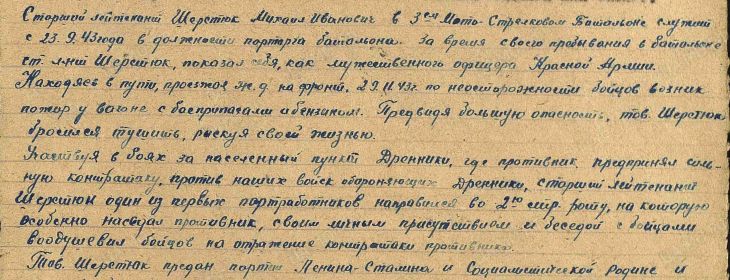 Старший лейтенант Шерстюк Михаил Иванович в 3ем Мото-Стрелковом Батальоне служит
с 23.9.43 года в должности парторга батальона. За время своего пребывания в батальоне
ст. л-нт Шерстюк, показал себя, как мужественного офицера Красной Армии.
Находясь в пути, проезжая ж.д. на фронт, 29.11.43г. по неосторожности бойцов возник
пожар у вагоне с боеприпасами и бензином. Предвидя большую опасность, тов. Шерстюк
бросился тушить, рискуя своей жизнью.
Участвуя в боях за населенный пункт Дренники, где противник предпринял силь-
ную контратаку, против наших войск обороняющих Дренники, старший лейтенант
Шерстюк один из первых партработников направился во 2ую стр. роту, на которую
особенно наседал противник, своим личным присутствием и беседой с бойцами
воодушевил бойцов на отражение контратаки противника.
Тов. Шерстюк предан партии Ленина-Сталина и Социалистической Родине и